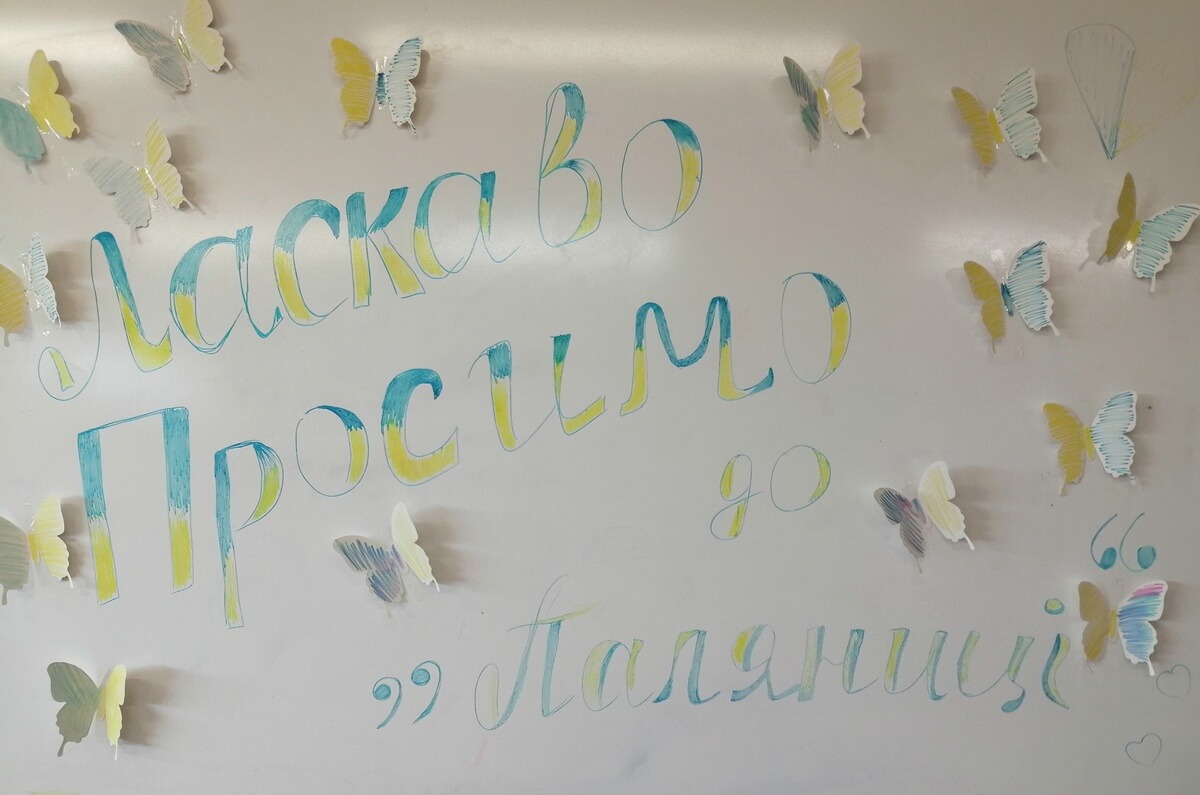 Ласкаво
Просимо
до
„Паляниці“